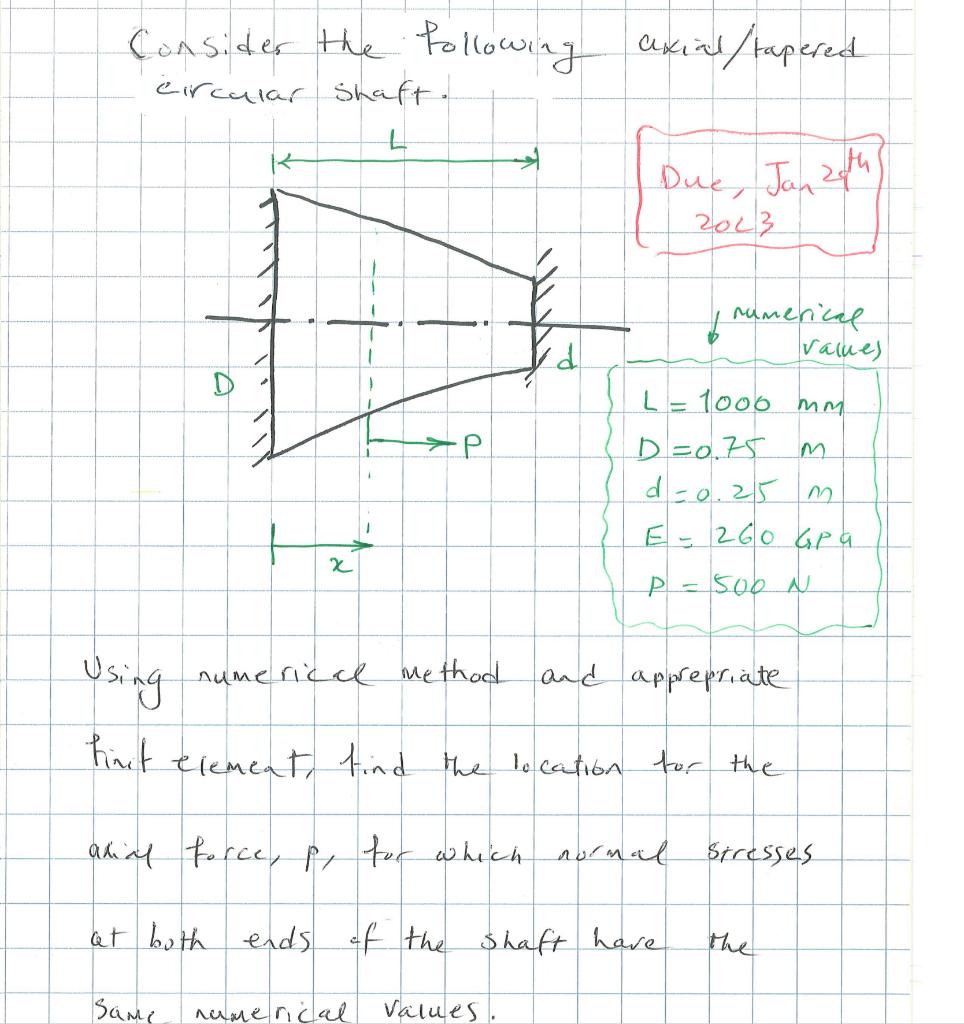 Consider the following axial/tapered
circular shaft.
L
Due, Jan 29th
2023
numerical
values
D
d
P
x
L = 1000 mm
D = 0.75 m
d = 0.25 m
E = 260 GPa
P = 500 N
Using numerical method and apprepriate
finit element, find the location for the
axial force, P, for which normal stresses
at both ends of the shaft have the
same numerical values.